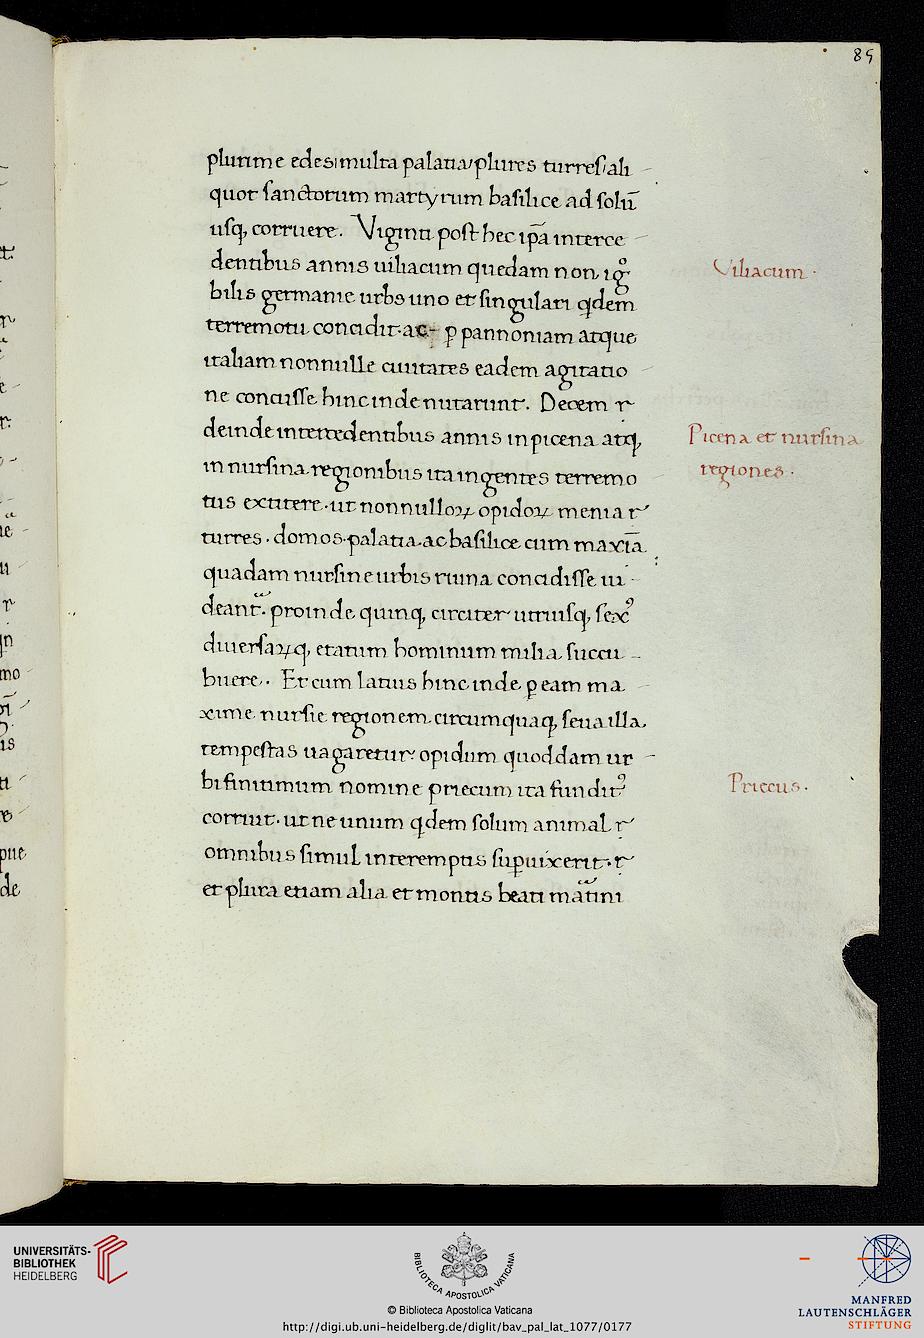 85
plurime edes multa palatia plures turres ali
quot sanctorum martyrum basilice ad solũ
usq, corruere. Viginti post hec ip̃a interce
dentibus annis uiliacum quedam non ig᷒
Viliacum.
bilis germanie urbs uno et singulari qdem
terremotu concidit. ac ꝑ pannoniam atque
italiam nonnulle ciuitates eadem agitatio
ne concusse hinc inde nutarunt. Decem ⁊
deinde intercedentibus annis in picena atq,
Picena et nursina
in nursina regionibus ita ingentes terremo
regiones.
tus extitere. ut nonnulloꝝ opidoꝝ menia ⁊
turres. domos. palatia. ac basilice cum maxĩa
quadam nursine urbis ruina concidisse ui
deant̃. proinde quinq, circiter utriusq, sex᷒
diuersaꝝq, etatum hominum milia succu
buere. Et cum latius hinc inde ꝑ eam ma
xime nursie regionem circumquaq, seua illa
tempestas uagaretur. opidum quoddam ur
bi finitimum nomine priecum ita fundit᷒
Priecus.
corruit. ut ne unum qdem solum animal ⁊
omnibus simul interemptis suꝑuixerit. ⁊
et plura etiam alia et montis beati mãtini
UNIVERSITÄTS-
BIBLIOTHEK
HEIDELBERG
BIBLIOTECA APOSTOLICA VATICANA
© Biblioteca Apostolica Vaticana
http://digi.ub.uni-heidelberg.de/diglit/bav_pal_lat_1077/0177
MANFRED
LAUTENSCHLÄGER
STIFTUNG